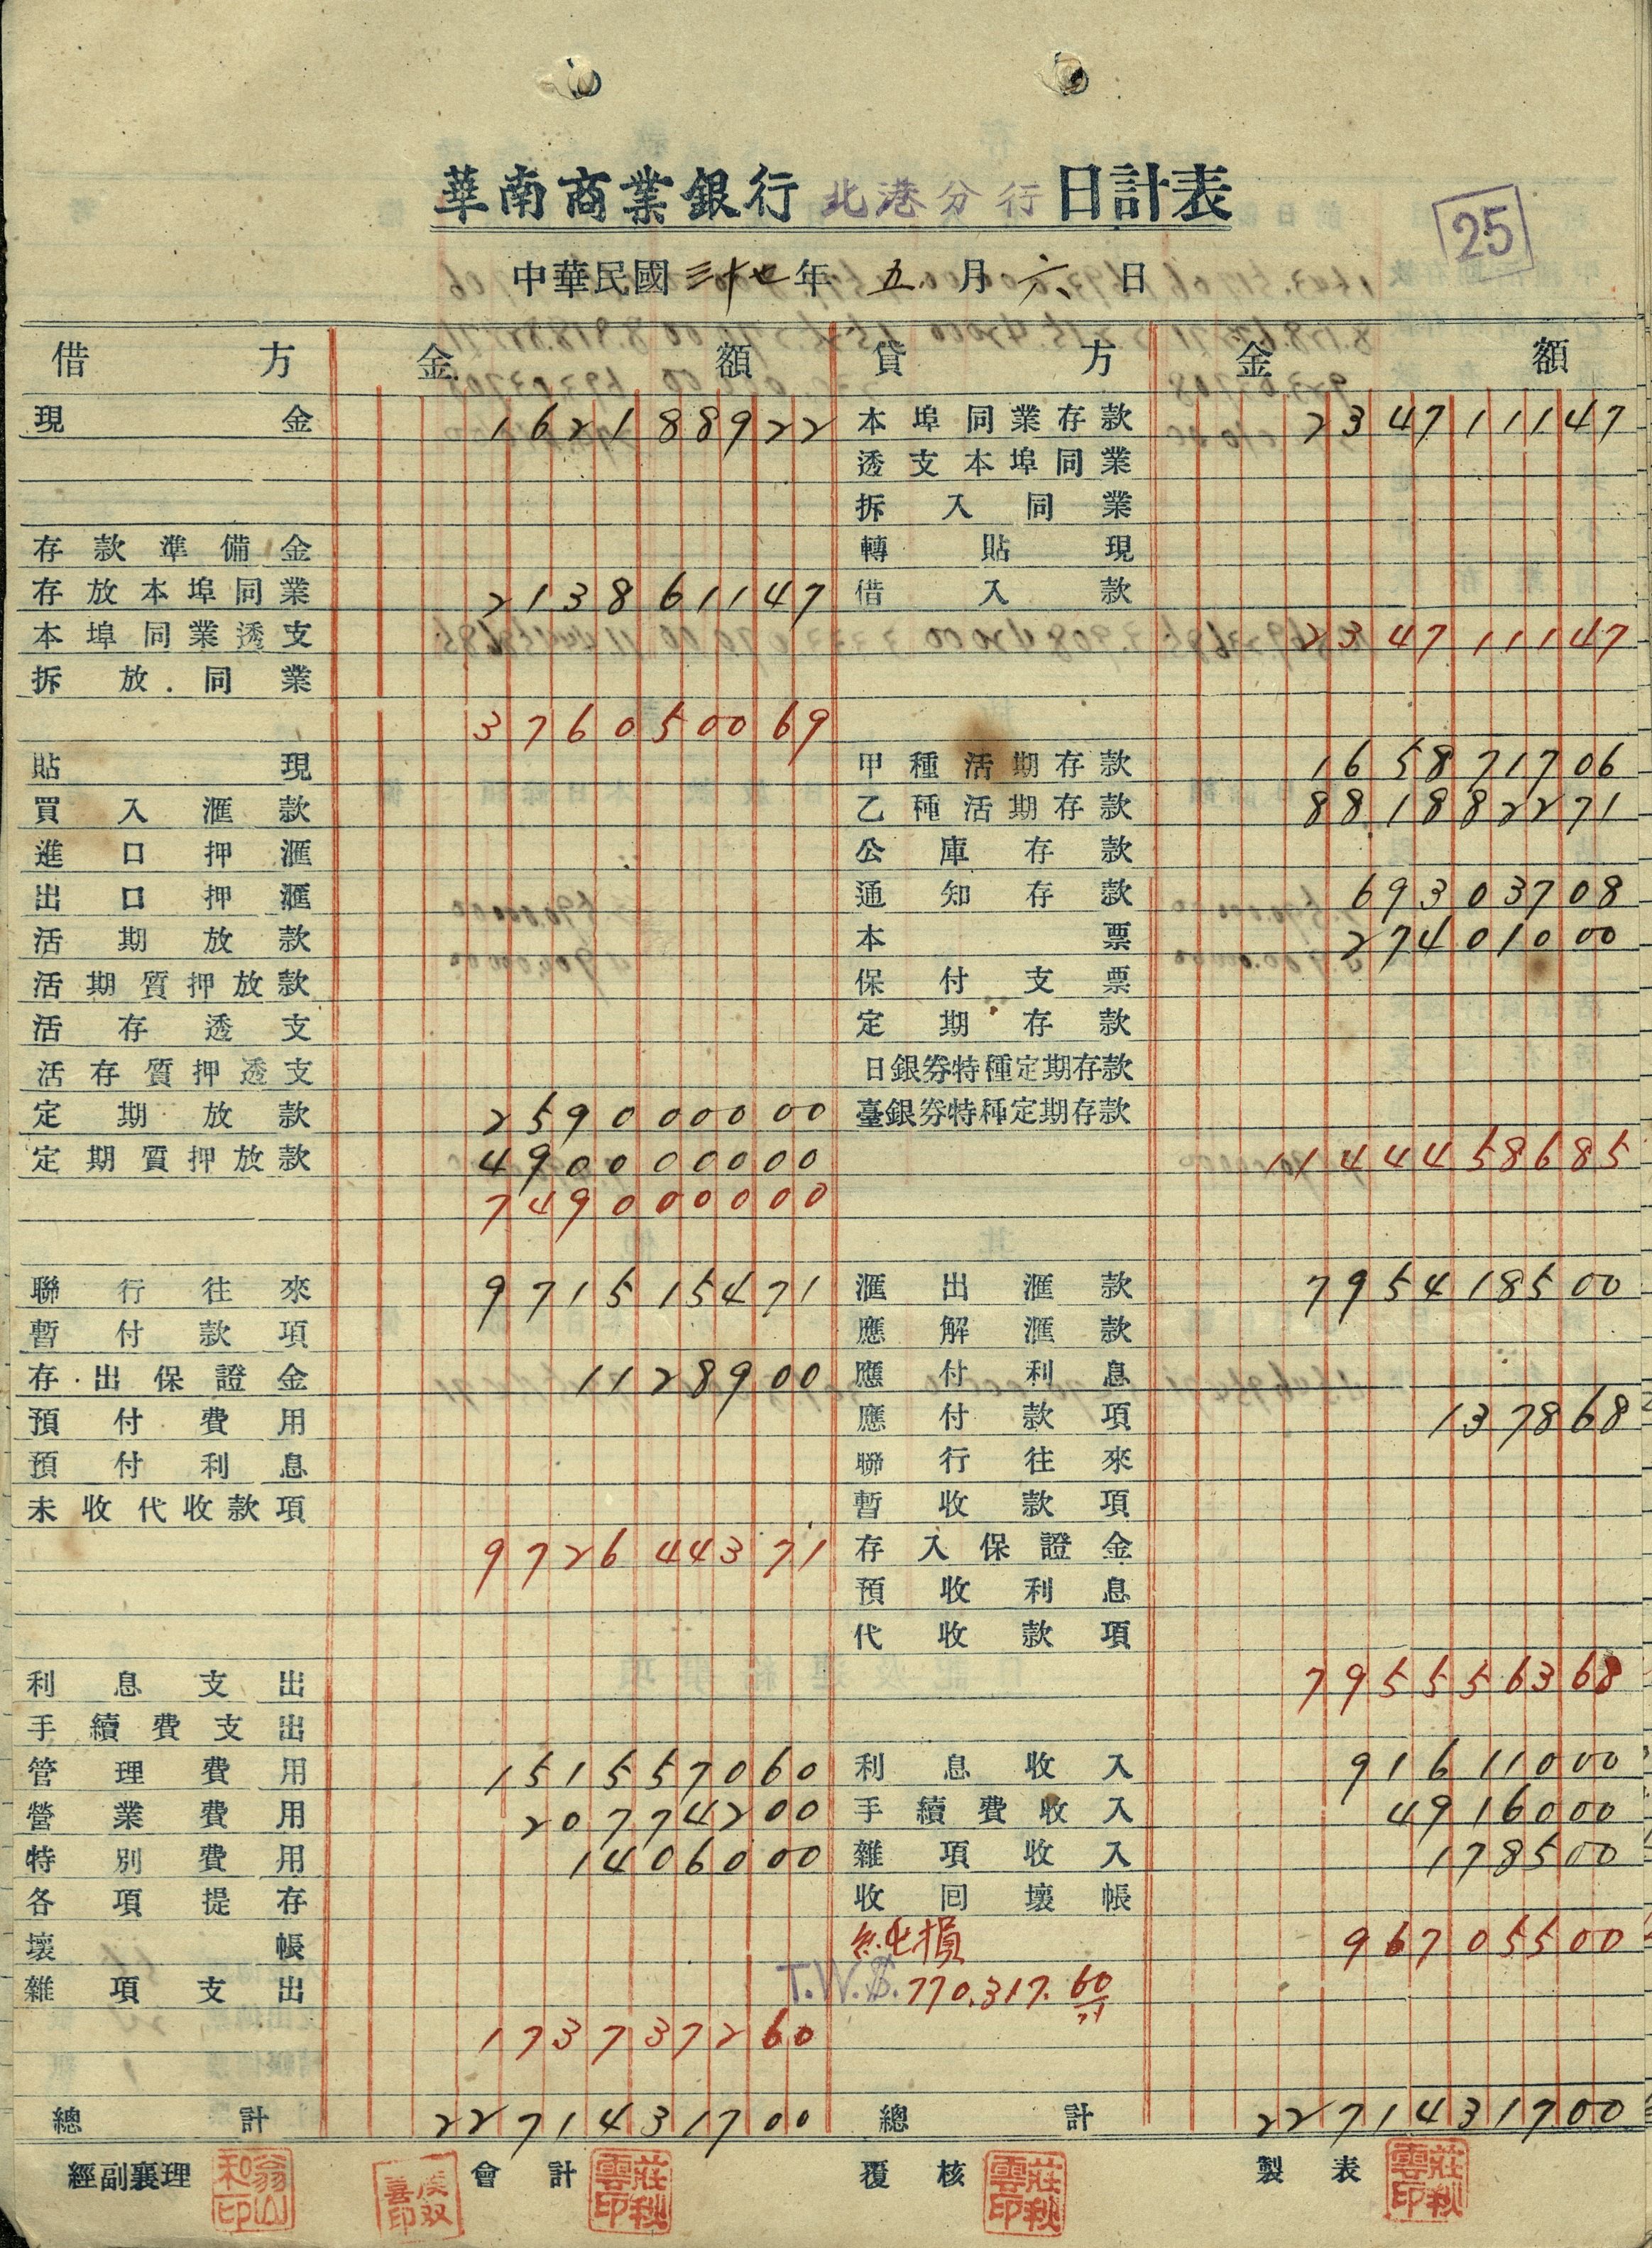 華南商業銀行 北港分行 日計表
25
中華民國三十七年 五月 六日
借方 金額 貸方 金額
現金 162188922 本埠同業存款 234711147
透支本埠同業
拆入同業
存款準備金 轉貼現
存放本埠同業 213861147 借入款
本埠同業透支 234711147
拆放同業
376050069
貼現 甲種活期存款 165871706
買入滙款 乙種活期存款 881882271
進口押滙 公庫存款
出口押滙 通知存款 69303708
活期放款 本票 27401000
活期質押放款 保付支票
活存透支 定期存款
活存質押透支 日銀券特種定期存款
定期放款 259000000 臺銀券特種定期存款
定期質押放款 490000000 1144458685
749000000
聯行往來 971515471 滙出滙款 795418500
暫付款項 應解滙款
存出保證金 1128900 應付利息
預付費用 應付款項 137868
預付利息 聯行往來
未收代收款項 暫收款項
972644371 存入保證金
預收利息
代收款項
利息支出 795556368
手續費支出
管理費用 151557060 利息收入 91611000
營業費用 20774200 手續費收入 4916000
特別費用 1406000 雜項收入 178500
各項提存 收囘壞帳
壞帳 純損 96705500
雜項支出 T.W.$. 770.317.60
173737260
總計 2271431700 總計 2271431700
經副襄理 會計 莊秋雲印 覆核 莊秋雲印 製表 莊秋雲印